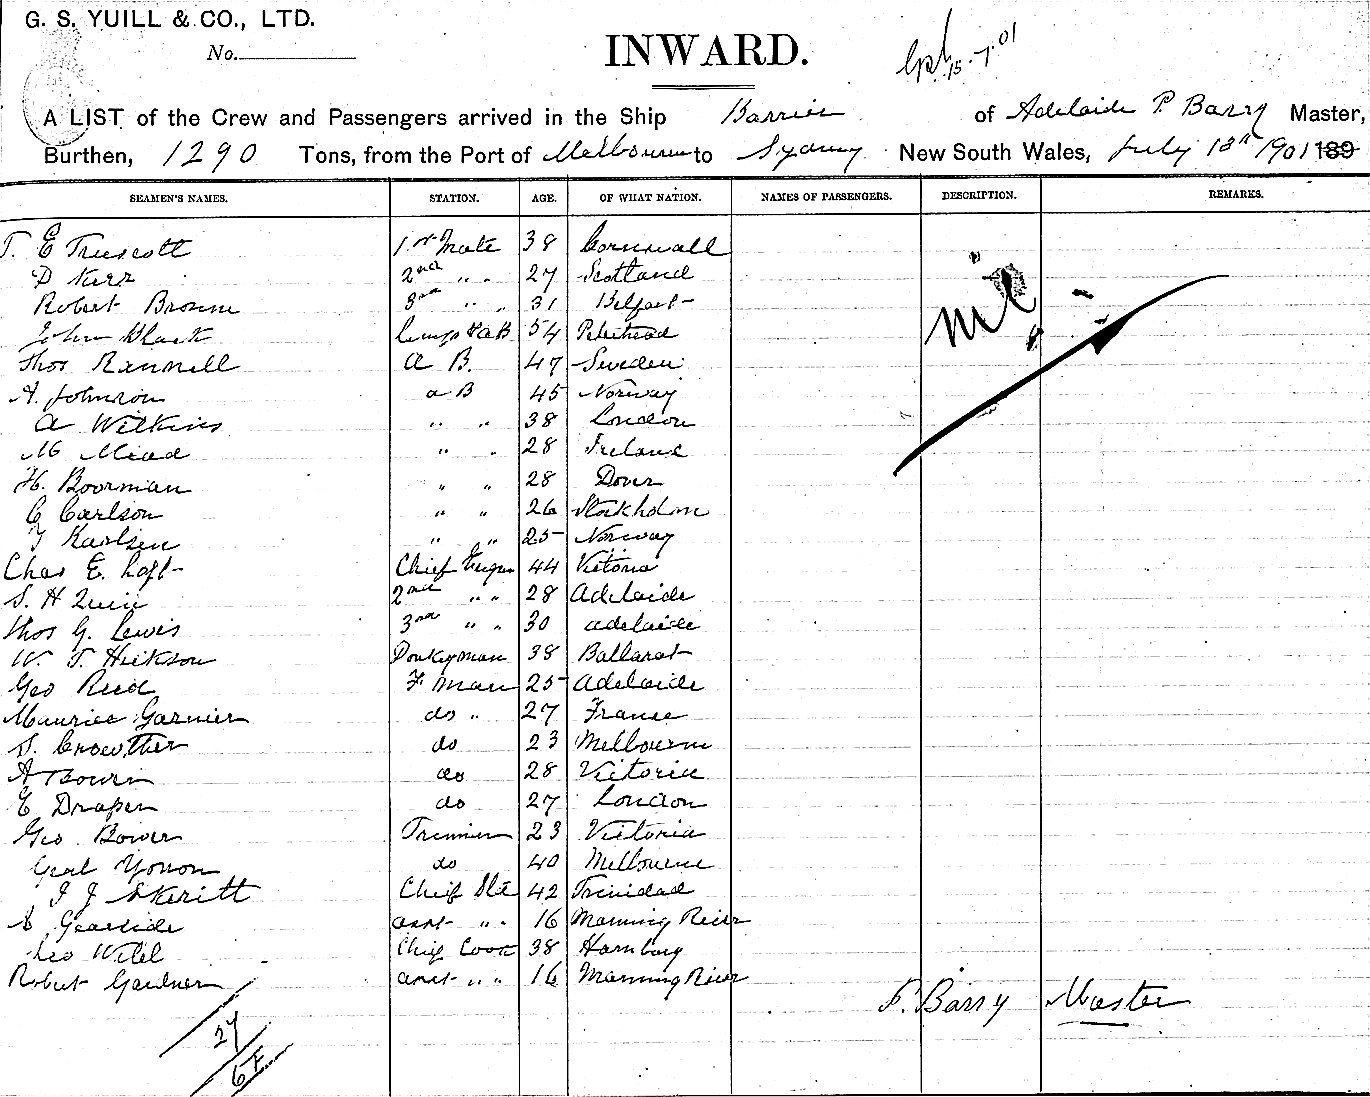 G. S. YUILL & CO., LTD.
No.
INWARD.
15-7-01
A LIST of the Crew and Passengers arrived in the Ship Barrier of Adelaide P. Barry Master,
Burthen, 1290 Tons, from the Port of Melbourne to Sydney New South Wales, July 13th 1901 189
SEAMEN'S NAMES. STATION. AGE. OF WHAT NATION. NAMES OF PASSENGERS. DESCRIPTION. REMARKS.
T. E Truscott 1st Mate 38 Cornwall
D Kerr 2nd " " 27 Scotland
Robert Browne 3rd " " 31 Belfast
John Black Lamps & AB 54 Peterhead
Thos Rannell A B. 47 Sweden
A. Johnson a B 45 Norway
A Wilkins " " 38 London
M Mead " " 28 Ireland
H. Boorman " " 28 Dover
C Carlson " " 26 Stockholm
Karlsen " " 25 Norway
Chas E. Loft Chief Engnr 44 Victoria
S. H Quin 2nd " " 28 Adelaide
Thos G. Lewis 3rd " " 30 adelaide
W. T. Hickson Donkeyman 38 Ballarat
Geo Reed F. man 25 Adelaide
Maurice Garnier do " 27 France
S. Crowther do 23 Melbourne
A Bourn do 28 Victoria
E Draper do 27 London
Geo Bower Trimmer 23 Victoria
do 40 Melbourne
J Skeritt Chief Std 42 Trinidad
Gearside asst " " 16 Manning River
Leo Chief Cook 38 Hamburg
Robert Gardner asst " " 16 Manning River
nil
P. Barry Master
27